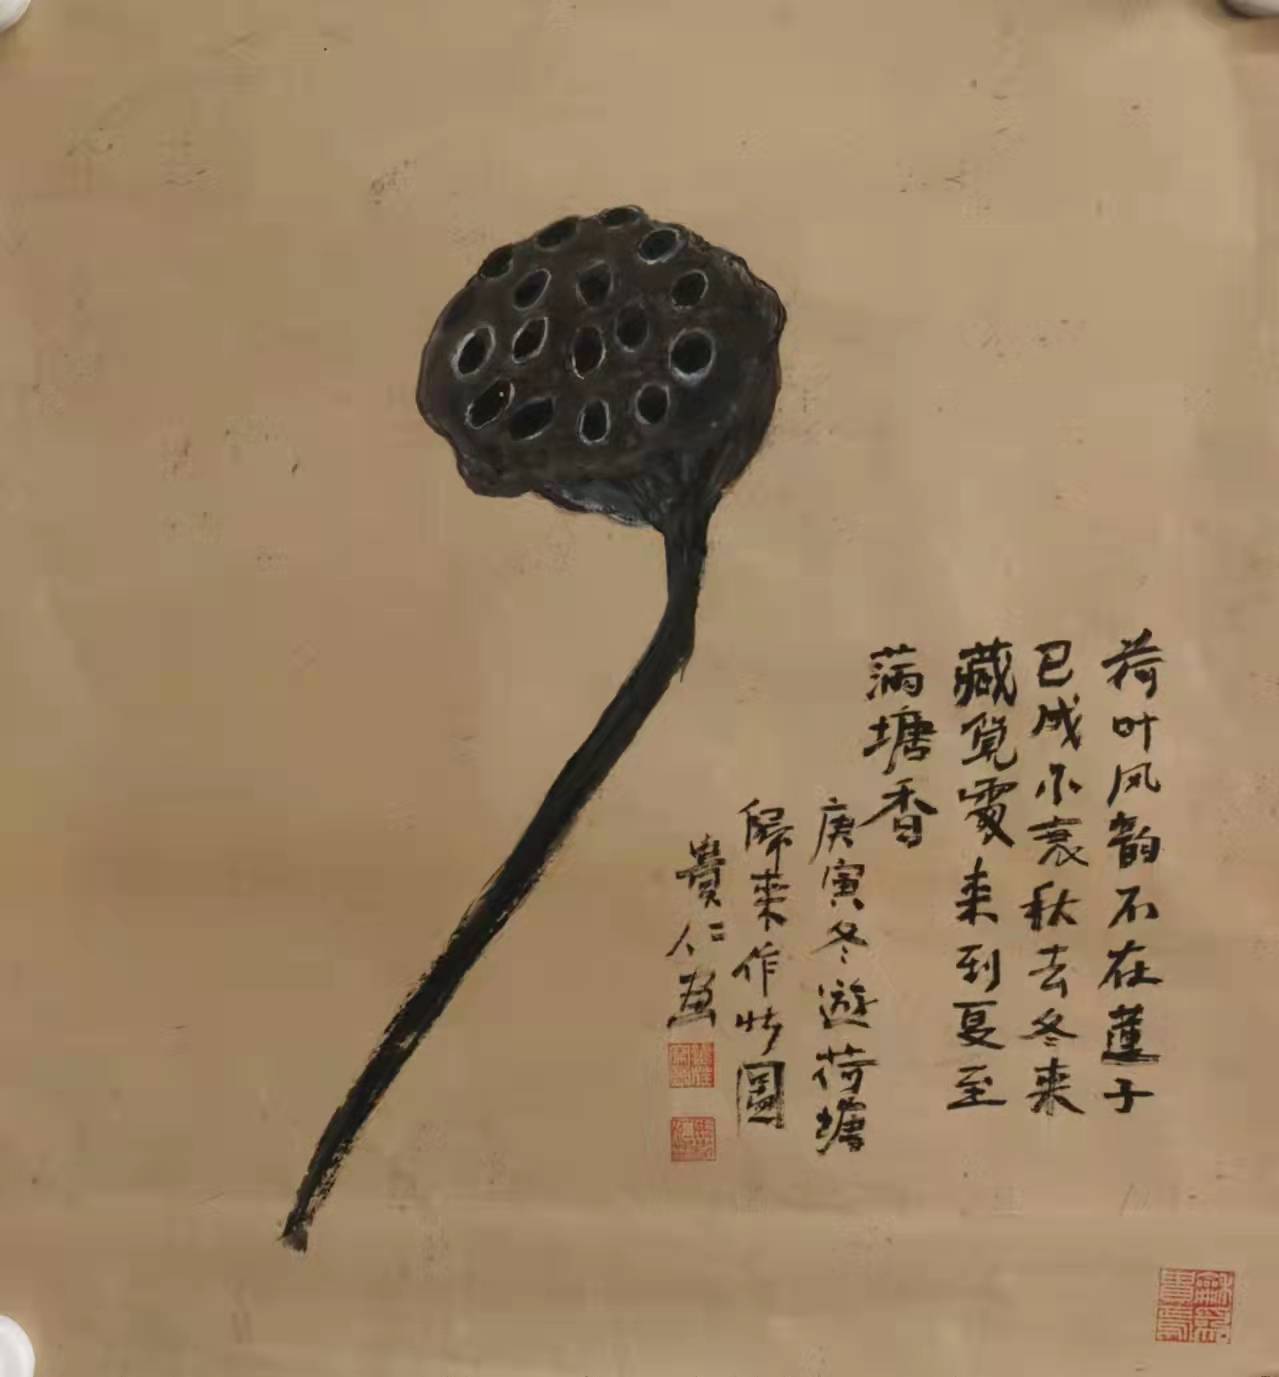 荷叶风韵不在蓮子
已成衰秋去冬来
藏来到夏至
满塘香
庚寅冬遊荷塘
歸来作此圖
貴仁画